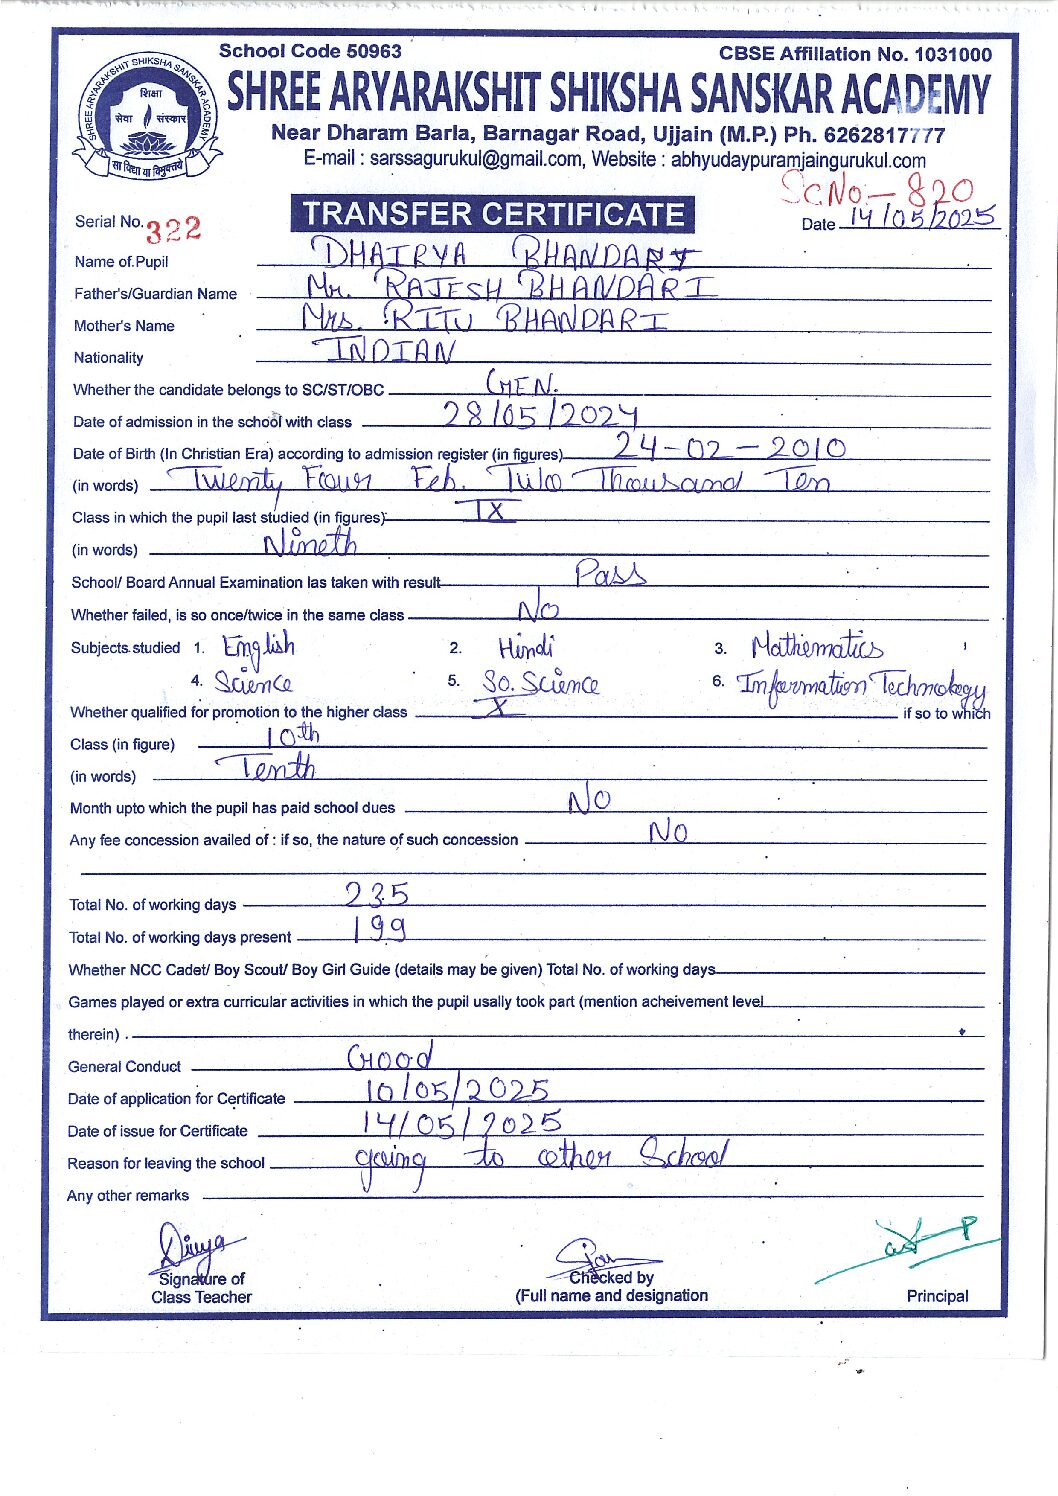 School Code 50963 CBSE Affiliation No. 1031000
SHREE ARYARAKSHIT SHIKSHA SANSKAR ACADEMY
Near Dharam Barla, Barnagar Road, Ujjain (M.P.) Ph. 6262817777
E-mail : sarssagurukul@gmail.com, Website : abhyudaypuramjaingurukul.com
SHREE ARYARAKSHIT SHIKSHA SANSKAR ACADEMY
शिक्षा
सेवा संस्कार
सा विद्या या विमुक्तये
Sc.No.- 820
TRANSFER CERTIFICATE
Serial No. 322 Date 14/05/2025
Name of Pupil DHAIRYA BHANDARI
Father's/Guardian Name Mr. RAJESH BHANDARI
Mother's Name Mrs. RITU BHANDARI
Nationality INDIAN
Whether the candidate belongs to SC/ST/OBC GEN.
Date of admission in the school with class 28/05/2024
Date of Birth (In Christian Era) according to admission register (in figures) 24-02-2010
(in words) Twenty Four Feb. Two Thousand Ten
Class in which the pupil last studied (in figures) IX
(in words) Nineth
School/ Board Annual Examination las taken with result Pass
Whether failed, is so once/twice in the same class No
Subjects studied 1. English 2. Hindi 3. Mathematics
4. Science 5. So. Science 6. Information Technology
Whether qualified for promotion to the higher class X if so to which
Class (in figure) 10th
(in words) Tenth
Month upto which the pupil has paid school dues No
Any fee concession availed of : if so, the nature of such concession No
Total No. of working days 235
Total No. of working days present 199
Whether NCC Cadet/ Boy Scout/ Boy Girl Guide (details may be given) Total No. of working days
Games played or extra curricular activities in which the pupil usally took part (mention acheivement level
therein) .
General Conduct Good
Date of application for Certificate 10/05/2025
Date of issue for Certificate 14/05/2025
Reason for leaving the school going to other School
Any other remarks
Divya
Signature of Checked by
Class Teacher (Full name and designation Principal